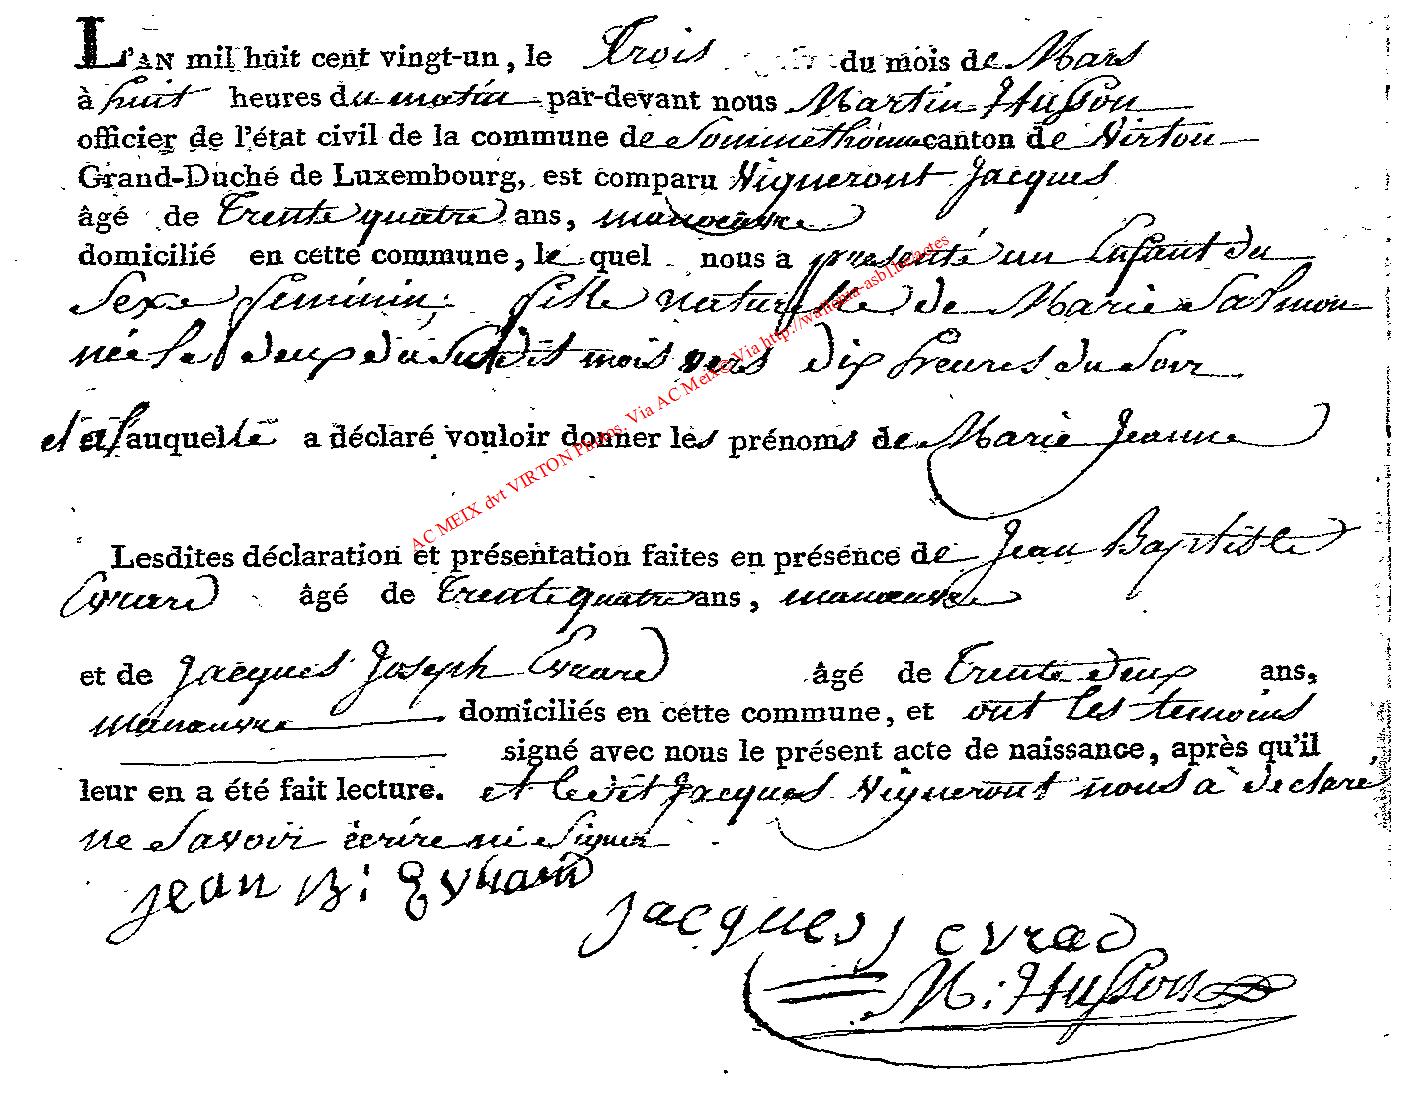 L'AN mil huit cent vingt-un, le Trois du mois de Mars
à huit heures du matin par-devant nous Martin Husson
officier de l'état civil de la commune de Sommethonne canton de Virton
Grand-Duché de Luxembourg, est comparu Vigneront Jacques
âgé de Trente quatre ans, manoeuvre
domicilié en cette commune, le quel nous a presenté un Enfant du
Sexe feminin, fille naturelle de Marie Salmon
née le deux du Susdit mois vers dix heures du Soir
et a lauquelle a déclaré vouloir donner les prénoms de Marie Jeanne
AC MEIX dvt VIRTON Photos. Via AC Meix@ Via http://wallonia-asbl.be/actes
Lesdites déclaration et présentation faites en présence de Jean Baptiste
Evrard âgé de Trente quatre ans, manoeuvre
et de Jacques Joseph Evrard âgé de Trente deux ans,
manoeuvre domiciliés en cette commune, et ont les temoins
signé avec nous le présent acte de naissance, après qu'il
leur en a été fait lecture. et ledit Jacques Vigneront nous a declaré
ne Savoir écrire ni Signer
jean B: Evrard
jacques j evrad
M: Husson